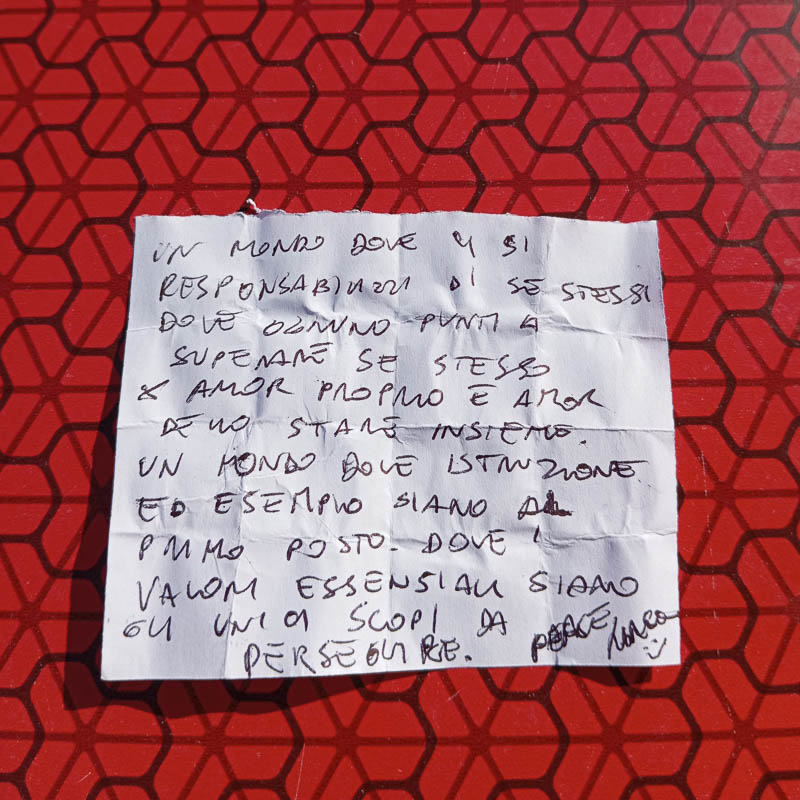 UN MONDO DOVE CI SI
RESPONSABILIZZI DI SE STESSI
DOVE OGNUNO PUNTI A
SUPERARE SE STESSO
X AMOR PROPRIO E AMOR
DELLO STARE INSIEME.
UN MONDO DOVE ISTRUZIONE
ED ESEMPIO SIANO AL
PRIMO POSTO. DOVE I
VALORI ESSENSIALI SIANO
GLI UNICI SCOPI DA
PERSEGUIRE. PEACE